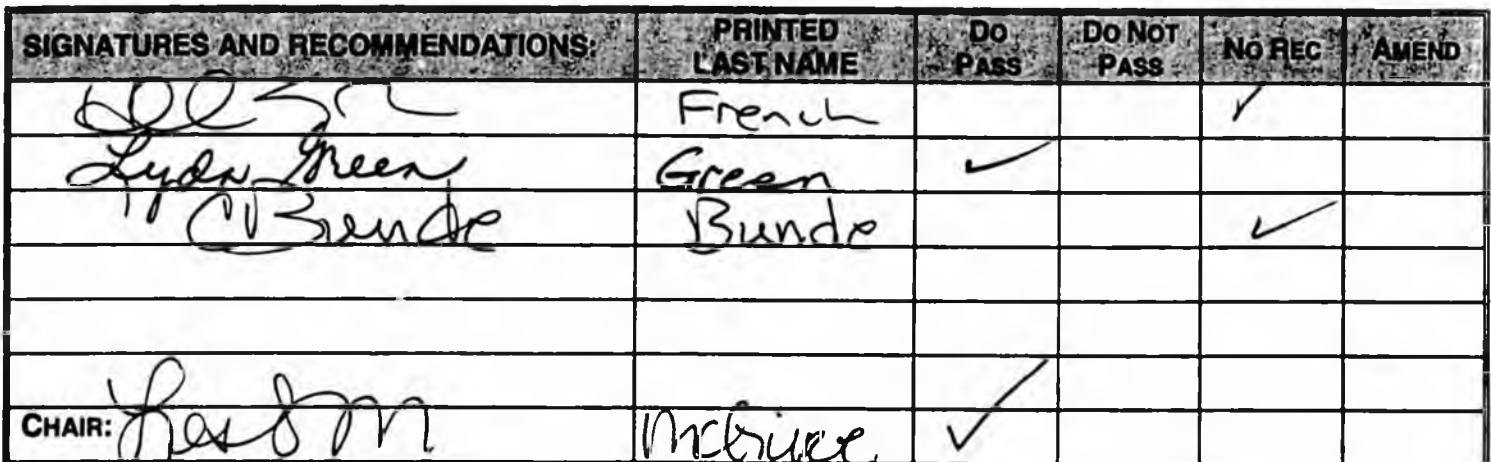 SIGNATURES AND RECOMMENDATIONS: PRINTED LAST NAME DO PASS DO NOT PASS NO REC AMEND
French ✓
Lyda Green Green ✓
C Bunde Bunde ✓
CHAIR: McGuire ✓